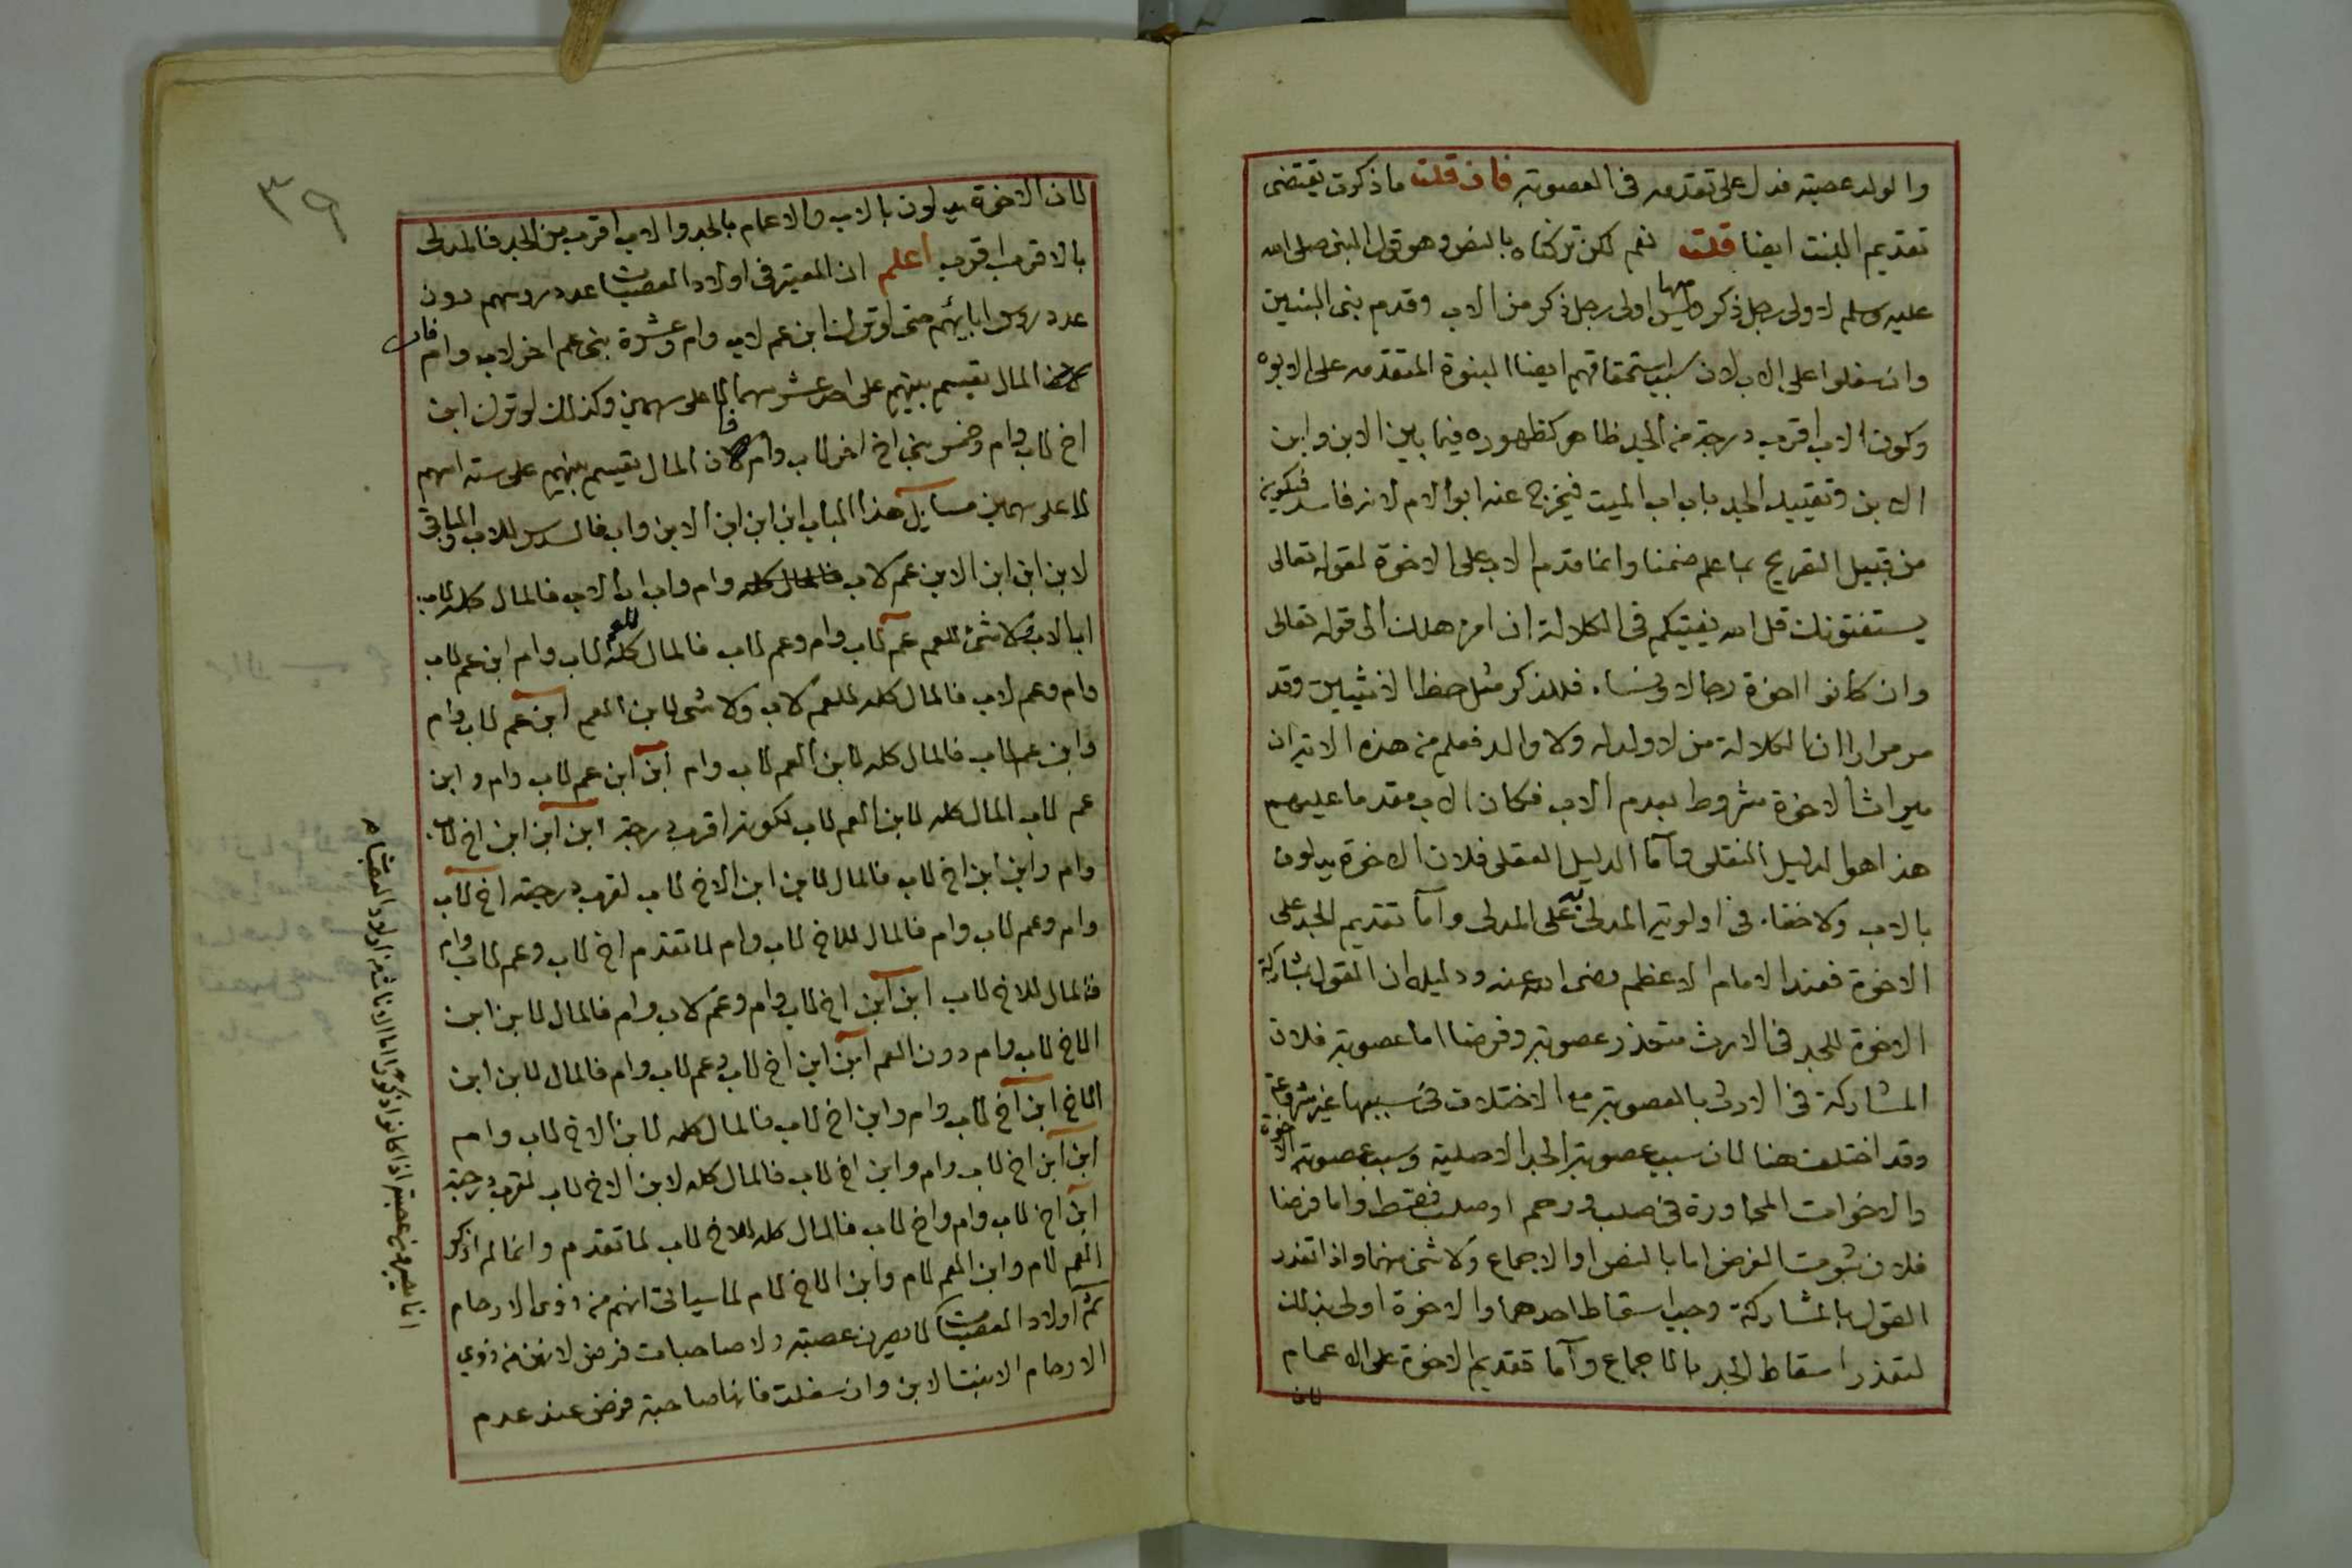 والولد عصبته فدل على تقدمه فى العصوبة فان قلت ما ذكرت يقتضى
تقديم البنت ايضا قلت نعم لكن تركناه بالنص وهو قول النبى صلى الله
عليه وسلم لاولى رجل ذكر وليس منها اولى رجل ذكر من الاب وقدم بنى البنين
وان سفلوا على الاب لان سبب استحقاقهم ايضا البنوة المتقدمه على الابوه
وكون الاب اقرب درجة من الجد ظاهر كظهوره فيما بين الابن وابن
الابن وتقييد الجد باب اب الميت فيخرج عنه ابو الام لانه فاسد فيكون
من قبيل التصريح بما علم ضمنا وانما قدم الاب على الاخوة لقوله تعالى
يستفتونك قل الله يفتيكم فى الكلالة ان امرء هلك الى قوله تعالى
وان كانوا اخوة رجالا ونساء فللذكر مثل حظ الانثيين وقد
مر مرارا ان الكلالة من لا ولد له ولا والد فعلم من هذه الاية ان
ميراث الاخوة مشروط بعدم الاب فكان الاب مقدما عليهم
هذا هو الدليل النقلى وأما الدليل العقلى فلان الاخوة يدلون
بالاب ولا خفاء فى اولوية المدلى به على المدلى وأما تقديم الجد على
الاخوة فعند الامام الاعظم رضى الله عنه ودليله ان القول بمشاركة
الاخوة للجد فى الارث متعذر عصوبة وفرضا اما عصوبة فلان
المشاركة فى الارث بالعصوبة مع الاختلاف فى سببها غير مشروعة
وقد اختلف هنا لان سبب عصوبة الجد الاصلية وسبب عصوبة الاخوة
والاخوات المجاورة فى صلب ورحم او صلب فقط واما فرضا
فلان ثبوت الفرض اما بالنص او الاجماع ولا شئ منهما واذا تعذر
القول بالمشاركة وجب اسقاط احدهما والاخوة اولى بذلك
لتعذر اسقاط الجد بالاجماع وأما تقديم الاخوة على الاعمام
لان
٣٩
لان الاخوة يدلون بالاب والاعمام بالجد والاب اقرب من الجد فالمدلى
بالاقرب اقرب اعلم ان المعتبر فى اولاد العصبات عدد روسهم دون
عدد روس ابائهم حتى لو ترك ابن عم لاب وام وعشرة بنى عم اخر لاب وام فان
المال يقسم بينهم على احد عشر سهما لا على سهمين وكذلك لو ترك ابن
اخ لاب وام وخمس بنى اخ اخر لاب وام فان المال يقسم بينهم على ستة اسهم
لا على سهمين مسايل هذا الباب ابن ابن ابن الابن واب فالسدس للاب والباقى
لابن ابن ابن الابن عم لاب وام واب اب الاب فالمال كله لاب
اب الاب ولا شئ للعم عم لاب وام وعم لاب فالمال كله للعم لاب وام ابن عم لاب
وام وعم لاب فالمال كله للعم لاب ولا شئ لابن العم ابن عم لاب وام
وابن عم لاب فالمال كله لابن العم لاب وام ابن ابن عم لاب وام وابن
عم لاب المال كله لابن العم لاب لكونه اقرب درجة ابن ابن ابن اخ لاب
وام وابن ابن اخ لاب فالمال لابن ابن الاخ لاب لقرب درجته اخ لاب
وام وعم لاب وام فالمال للاخ لاب وام لما تقدم اخ لاب وعم لاب وام
فالمال للاخ لاب ابن ابن اخ لاب وام وعم لاب وام فالمال لابن ابن
الاخ لاب وام دون العم ابن ابن اخ لاب وعم لاب وام فالمال لابن ابن
الاخ ابن اخ لاب وام وابن اخ لاب فالمال كله لابن الاخ لاب وام
ابن ابن اخ لاب وام وابن اخ لاب فالمال كله لابن الاخ لاب لقرب درجته
ابن اخ لاب وام واخ لاب فالمال كله للاخ لاب لما تقدم وانما لم اذكر
العم لام وابن العم لام وابن الاخ لام لما سياتى انهم من ذوى الارحام
ثم اولاد العصبات لا يصرن عصبة ولا صاحبات فرض لانهن من ذوي
الارحام الا بنت الابن وان سفلت فانها صاحبة فرض عند عدم
انما يصير عصبة اذا كانوا ذكورا اما الاناث من اولاد العصبات